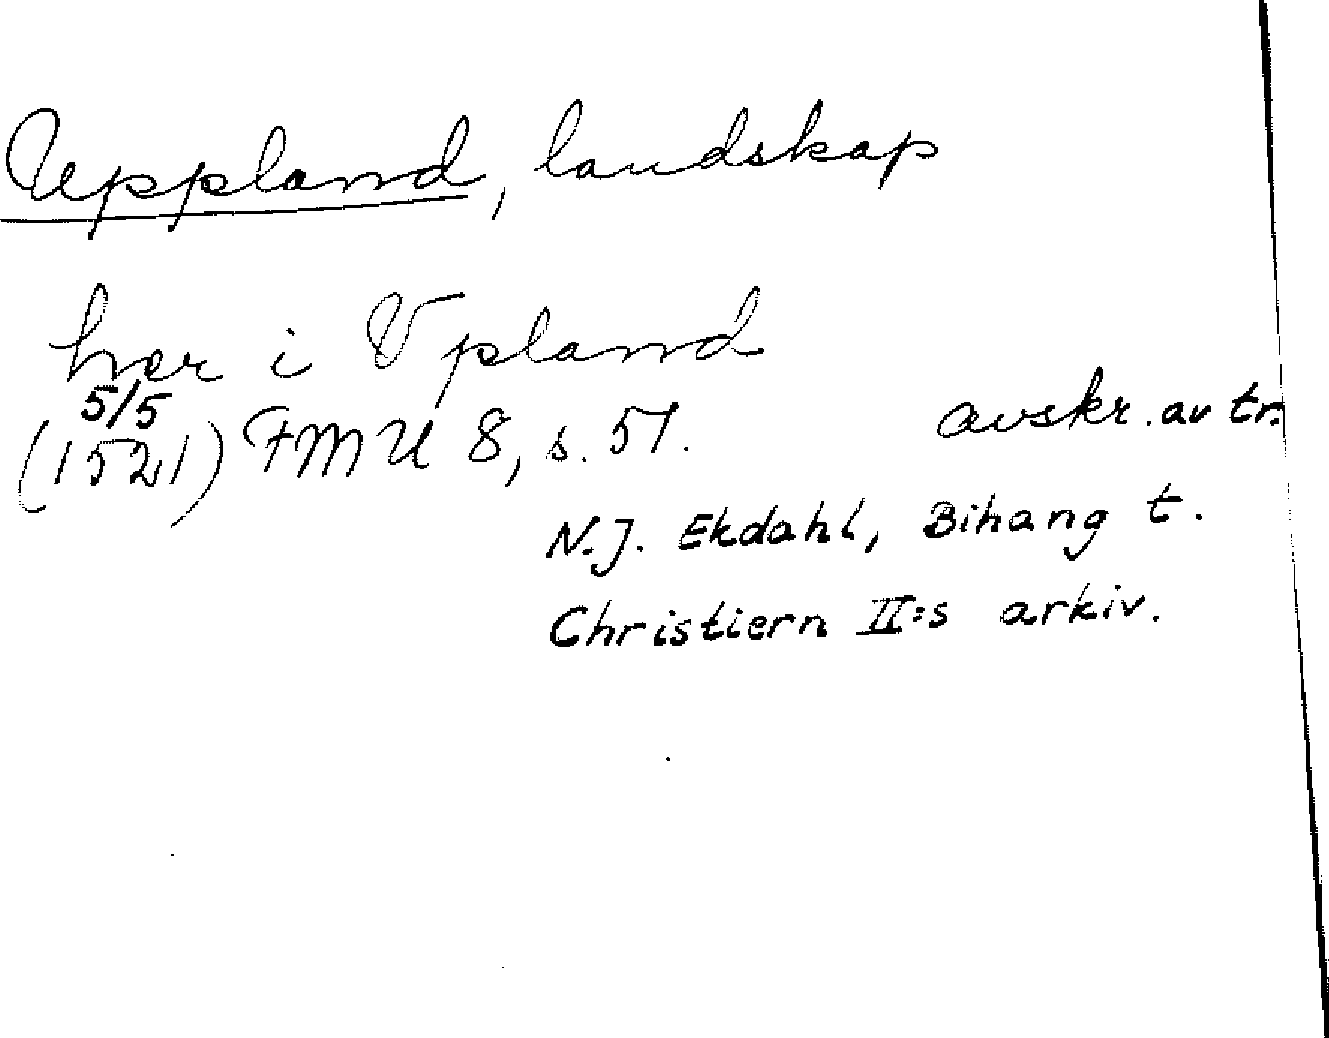 Uppland, landskap
her i Vpland
5/5
(1521) FMU 8, s. 51. avskr. av tr.
N.J. Ekdahl, Bihang t.
Christiern II:s arkiv.